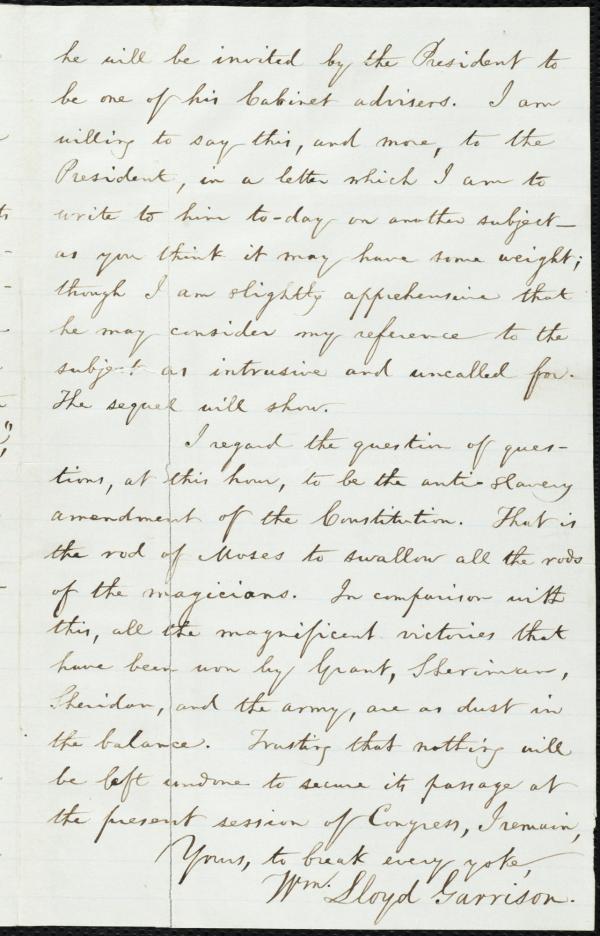 he will be invited by the President to
be one of his Cabinet advisers. I am
willing to say this, and more, to the
President, in a letter which I am to
write to him to-day on another subject—
as you think it may have some weight;
though I am slightly apprehensive that
he may consider my reference to the
subject as intrusive and uncalled for.
The sequel will show.
I regard the question of ques-
tions, at this hour, to be the anti-slavery
amendment of the Constitution. That is
the rod of Moses to swallow all the rods
of the magicians. In comparison with
this, all the magnificent victories that
have been won by Grant, Sherman,
Sheridan, and the army, are as dust in
the balance. Trusting that nothing will
be left undone to secure its passage at
the present session of Congress, I remain,
Yours, to break every yoke,
Wm. Lloyd Garrison.